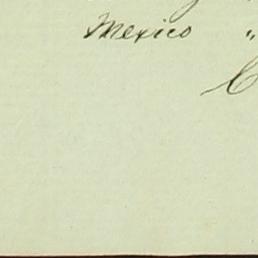 Mexico "
C